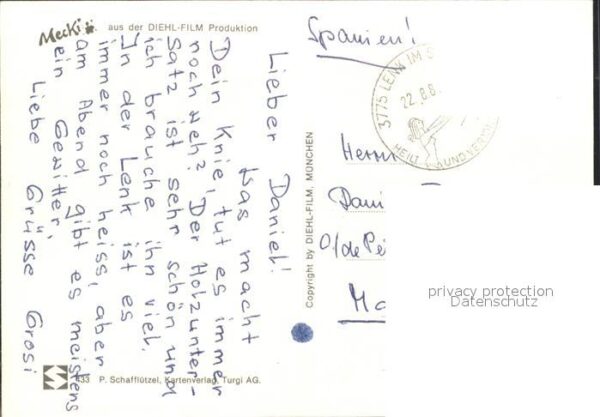 Mecki aus der DIEHL-FILM Produktion
Lieber Daniel!
Was macht
Dein Knie, tut es immer
noch weh? Der Holzunter-
satz ist sehr schön und
ich brauche ihn viel.
In der Lenk ist es
immer noch heiss, aber
am Abend gibt es meistens
ein Gewitter.
Liebe Grüsse Grosi
433 P. Schafflützel, Kartenverlag, Turgi AG.
Copyright by DIEHL-FILM, MÜNCHEN
Spanien!
3775 LENK IM S
22.8.8
HEILT UND
Herrn
Dani
c/o de Pé
Ma
privacy protection
Datenschutz